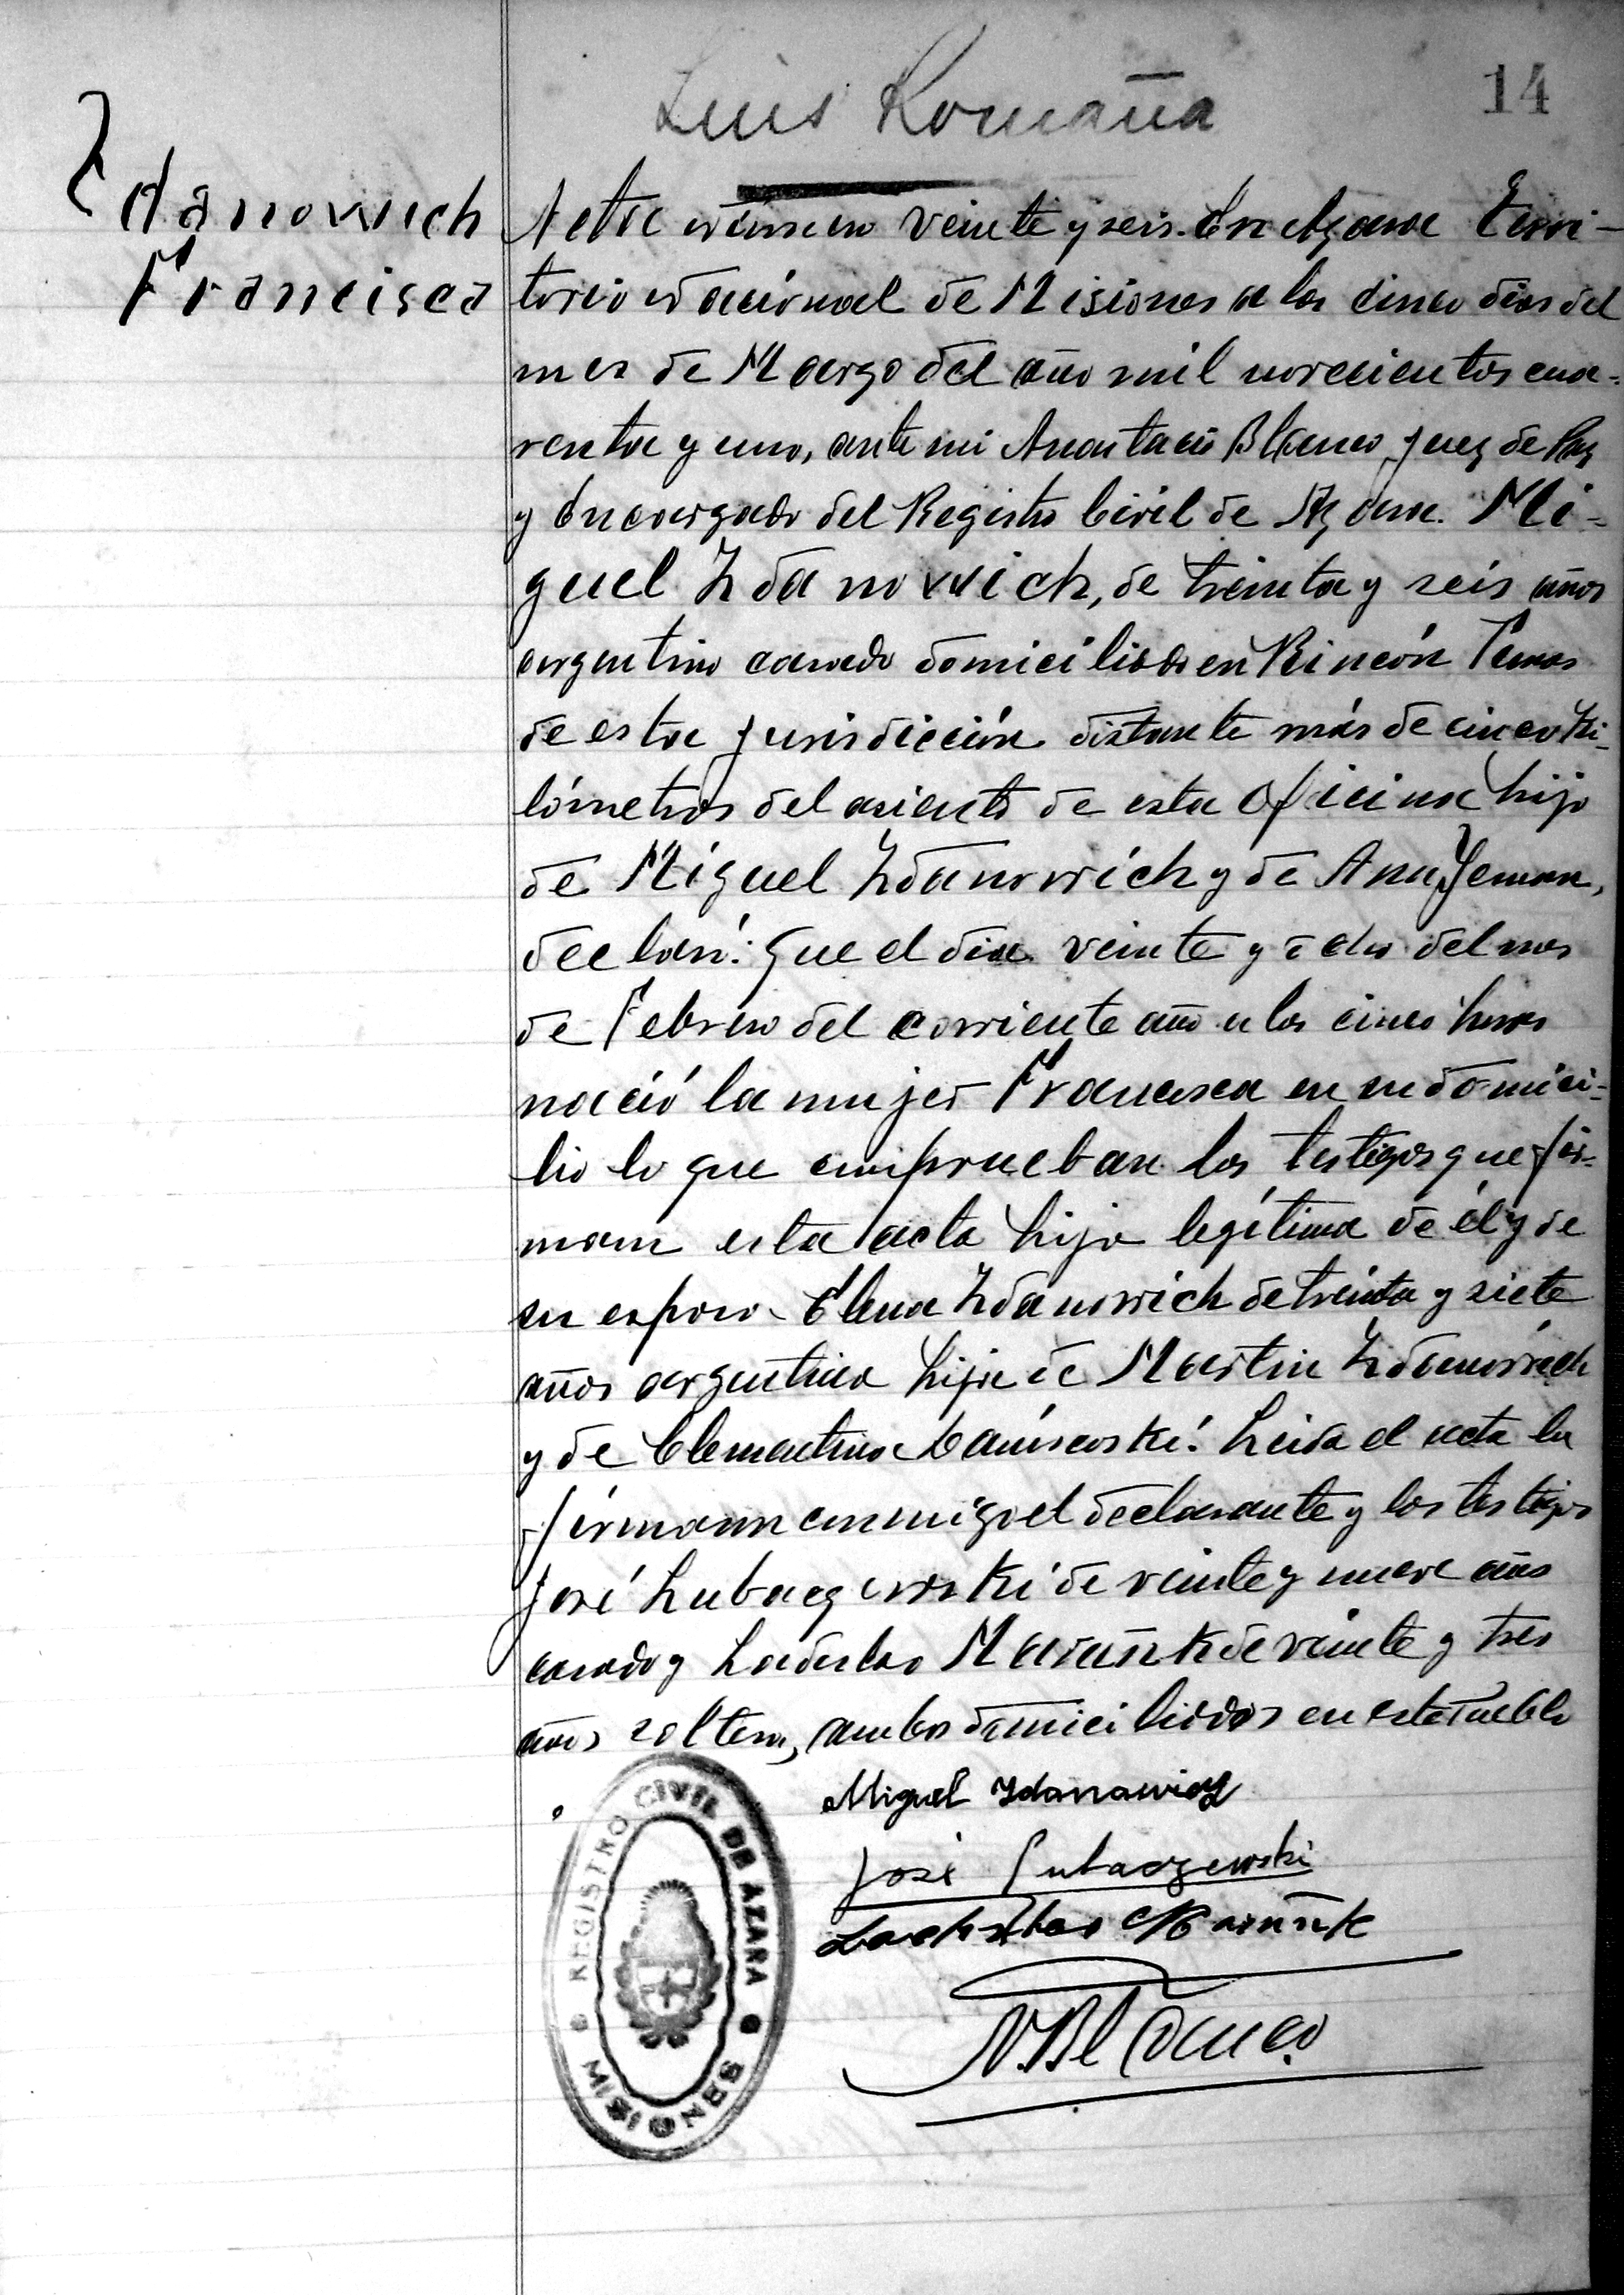 Luis Romaña
14
Zdanowich
Francisca
Acta número veinte y seis. En Azara Terri-
torio Nacional de Misiones a los cinco dias del
mes de Marzo del año mil novecientos cua-
renta y uno, ante mi Anastacio Blanco Juez de Paz
y Encargado del Registro Civil de Azara. Mi-
guel Zdanowich, de treinta y seis años
argentino casado domiciliado en Rincón
de esta jurisdicción distante más de cinco Ki-
lómetros del asiento de esta Oficina hijo
de Miguel Zdanowich y de Ana
declaró: Que el dia veinte y ocho del mes
de Febrero del corriente año a las cinco horas
nació la mujer Francisca en su domici-
lio lo que comprueban los testigos que fir-
mam esta acta hija legítima de él y de
su esposa Elena Zdanowich de treinta y siete
años argentina hija de Martin Zdanowich
y de Clementina Leida el acta la
firmann conmigo el declarante y los testigos
José Lubaczewski de veinte y nueve años
casado y Ladislao de veinte y tres
años soltero, ambos domiciliados en este Pueblo
Miguel Zdanawicz
José Lubaczewski
Ladislao
A. Blanco
REGISTRO CIVIL DE AZARA
MISIONES